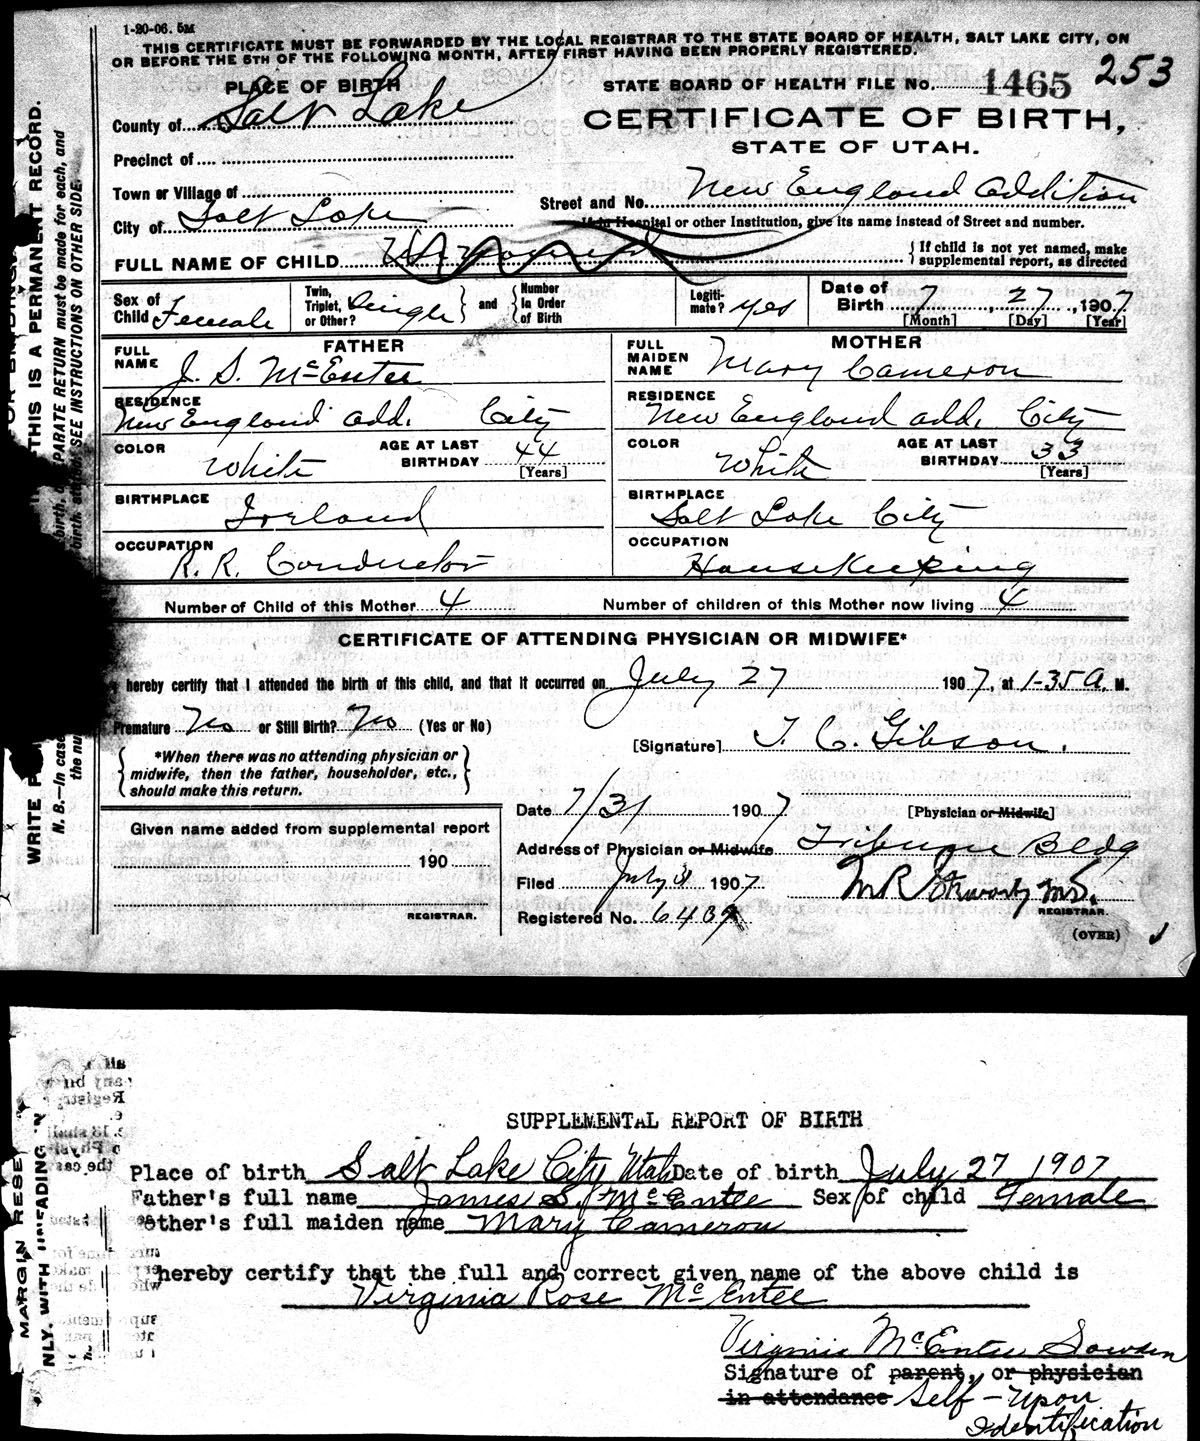 1-20-06. 5M
THIS CERTIFICATE MUST BE FORWARDED BY THE LOCAL REGISTRAR TO THE STATE BOARD OF HEALTH, SALT LAKE CITY, ON
OR BEFORE THE 5TH OF THE FOLLOWING MONTH, AFTER FIRST HAVING BEEN PROPERLY REGISTERED.
253
PLACE OF BIRTH
STATE BOARD OF HEALTH FILE No. 1465
County of Salt Lake
CERTIFICATE OF BIRTH,
STATE OF UTAH.
Precinct of
Town or Village of
Street and No. New England Addition
City of Salt Lake
If in Hospital or other Institution, give its name instead of Street and number.
FULL NAME OF CHILD
If child is not yet named, make
supplemental report, as directed
Sex of Child Female
Twin, Triplet, or Other? Single and Number in Order of Birth
Legitimate? yes
Date of Birth 7, 27, 1907
[Month] [Day] [Year]
FATHER
FULL NAME J. S. McEntee
RESIDENCE New England add. City
COLOR White AGE AT LAST BIRTHDAY 44 [Years]
BIRTHPLACE Ireland
OCCUPATION R. R. Conductor
MOTHER
FULL MAIDEN NAME Mary Cameron
RESIDENCE New England add. City
COLOR White AGE AT LAST BIRTHDAY 33 [Years]
BIRTHPLACE Salt Lake City
OCCUPATION Housekeeping
Number of Child of this Mother 4 Number of children of this Mother now living 4
CERTIFICATE OF ATTENDING PHYSICIAN OR MIDWIFE*
hereby certify that I attended the birth of this child, and that it occurred on July 27 1907, at 1-35 A. M.
Premature No or Still Birth? No (Yes or No)
*When there was no attending physician or
midwife, then the father, householder, etc.,
should make this return.
[Signature] T. C. Gibson.
[Physician or Midwife]
Date 7/31 1907
Given name added from supplemental report
190
REGISTRAR.
Address of Physician or Midwife Tribune Bldg
Filed July 31 1907
REGISTRAR.
Registered No.
(OVER)
WRITE
THIS IS A PERMANENT RECORD.
N. B.—In case
PARATE RETURN must be made for each, and
the nu
birth. SEE INSTRUCTIONS ON OTHER SIDE.
MARGIN RESE
NLY, WITH
SUPPLEMENTAL REPORT OF BIRTH
Place of birth Salt Lake City Utah Date of birth July 27 1907
Father's full name James S. McEntee Sex of child Female
other's full maiden name Mary Cameron
hereby certify that the full and correct given name of the above child is
Virginia Rose McEntee
Virginia McEntee Sowden
Signature of parent, or physician
in attendance Self - Upon
Identification